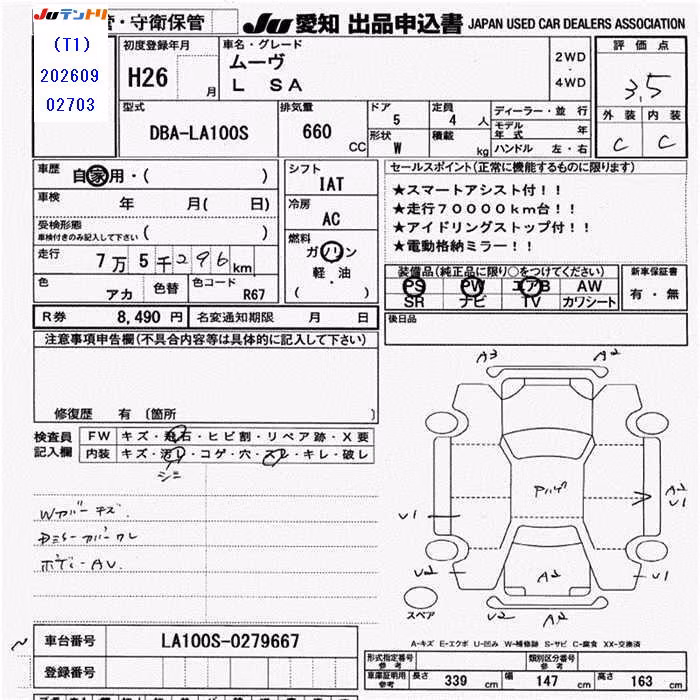 Juテントリ 管・守衛保管 JU 愛知 出品申込書 JAPAN USED CAR DEALERS ASSOCIATION
(T1)
202609
02703
初度登録年月 H26 月
車名・グレード
ムーヴ
L SA
2WD
・
4WD
評価点
3.5
外装 内装
C C
型式 DBA-LA100S
排気量 660 CC
ドア 5
定員 4 人
形状 W
積載 kg
ディーラー・並行
モデル年式 年
ハンドル 左・右
車歴 自家用・( )
車検 年 月( 日)
受検形態
車検付きのみ記入して下さい ( )
走行 7万5千296km
色 アカ 色替 色コード R67
シフト IAT
冷房 AC
燃料
ガソリン
軽・油
( )
セールスポイント(正常に機能するものに限ります)
★スマートアシスト付!!
★走行70000km台!!
★アイドリングストップ付!!
★電動格納ミラー!!
装備品(純正品に限り○をつけてください)
PS PW エアB AW
SR ナビ TV カワシート
新車保証書
有・無
R券 8,490 円 名変通知期限 月 日
後日品
注意事項申告欄(不具合内容等は具体的に記入して下さい)
修復歴 有 〔箇所
検査員記入欄
FW キズ・飛石・ヒビ割・リペア跡・X要
内装 キズ・汚レ・コゲ・穴・スレ・キレ・破レ
シミ
Wカバーキズ
ボディーAU
A3 A2
Pハゲ
A2
V1
V1
V2
A2
V1
V2 A2
スペア
A-キズ E-エクボ U-凹み W-補修跡 S-サビ C-腐食 XX-交換済
車台番号 LA100S-0279667
登録番号
形式指定番号 参考
類別区分番号 参考
車庫証明用 参考 長さ 339 cm 幅 147 cm 高さ 163 cm